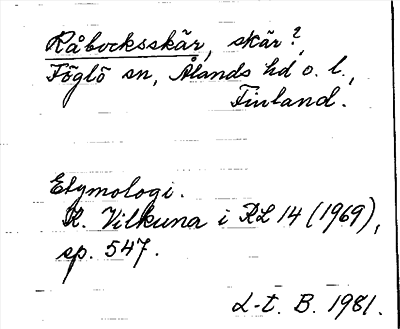 Råbocksskär, skär?,
Föglö sn, Ålands hd o. l.,
Finland.
Etymologi.
K. Vilkuna i RL 14 (1969),
sp. 547.
L-t. B. 1981.